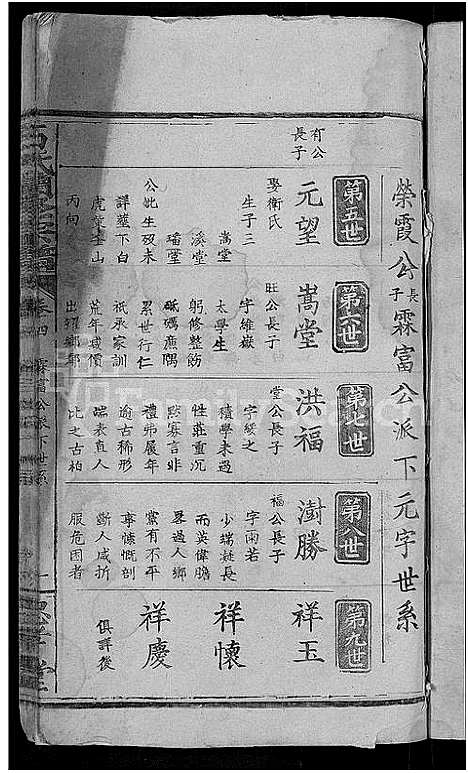 榮霞公長子霖富公派下元字世系
有公長子
第五世
元望
娶衛氏
生子三
嵩堂
溪堂
璠堂
公妣生歿未
詳塋下白
虎堂奎山
丙向
第六世
嵩堂
旺公長子
字維嶽
太學生
躬修整飭
砥礪廉隅
累世行仁
祇承家訓
荒年減價
出糶鄉鄰
第七世
洪福
堂公長子
字綏之
積學未遇
性莊重沉
默寡言非
禮弗履年
逾古稀形
端表直人
比之古柏
第八世
澍勝
福公長子
字雨若
少端凝長
而英偉膽
畧過人鄉
黨有不平
事慷慨剖
斷人咸折
服危困者
第九世
祥玉
祥懷
祥慶
俱詳後
卷四
霖富公派下世系
一
堂
FamilySearch